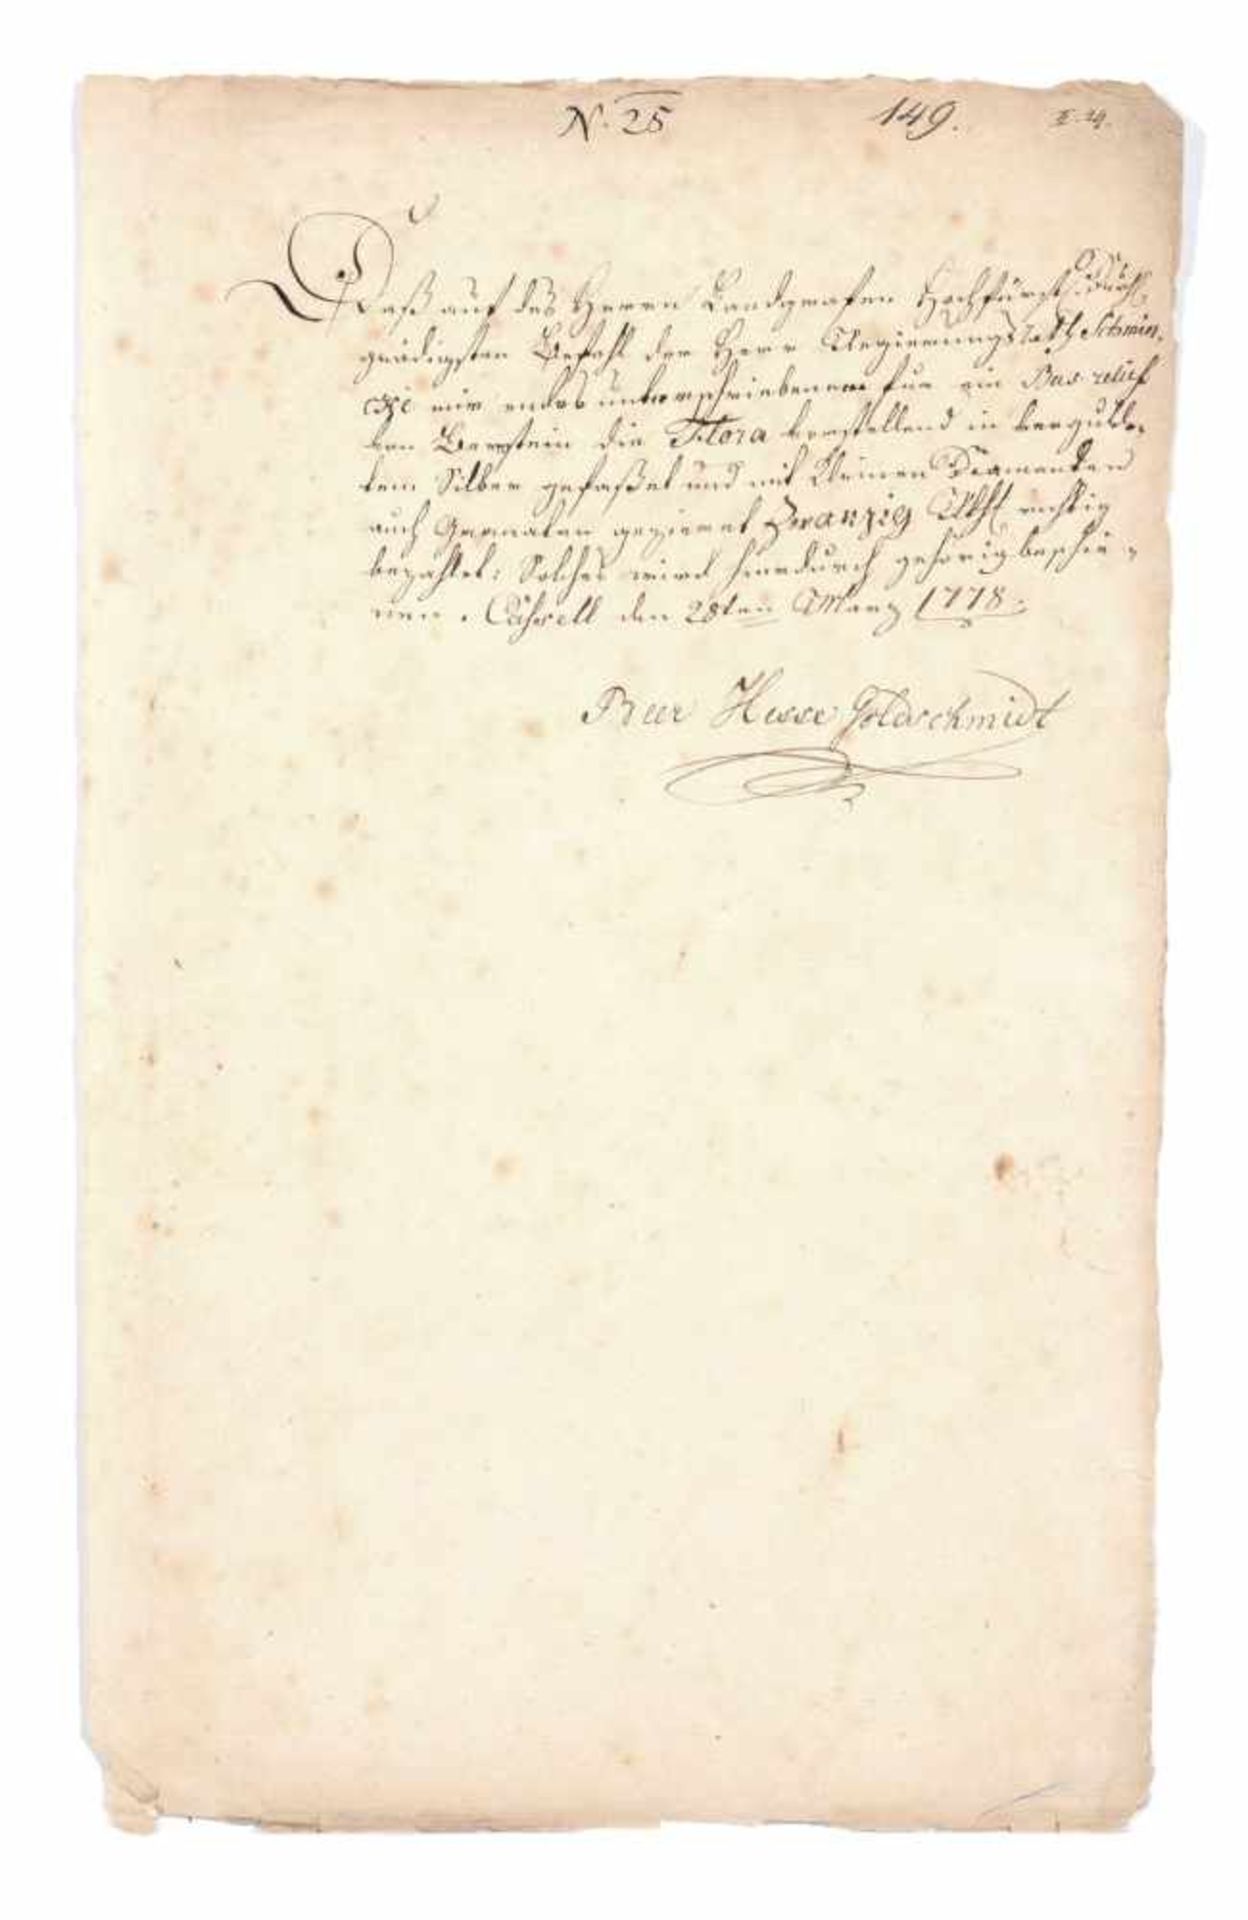 N. 25 149. E. 29.
Daß auf des Herrn Landgrafen Hochfürstl. Durchl.
gnädigsten Befehl der Herr Regierungs Rath Schmin-
cke mir endes unterschriebenem für ein Bas-relief
von Bernstein die Flora vorstellend in vergulde-
tem Silber gefaßet und mit kleinen Diamanten
auch Granaten gezieret Zwanzig Rthl richtig
bezahlet: Solches wird hierdurch gehörig beschie-
nen. Cassell den 28ten Martz 1778.
Beer Hesse Goldschmidt